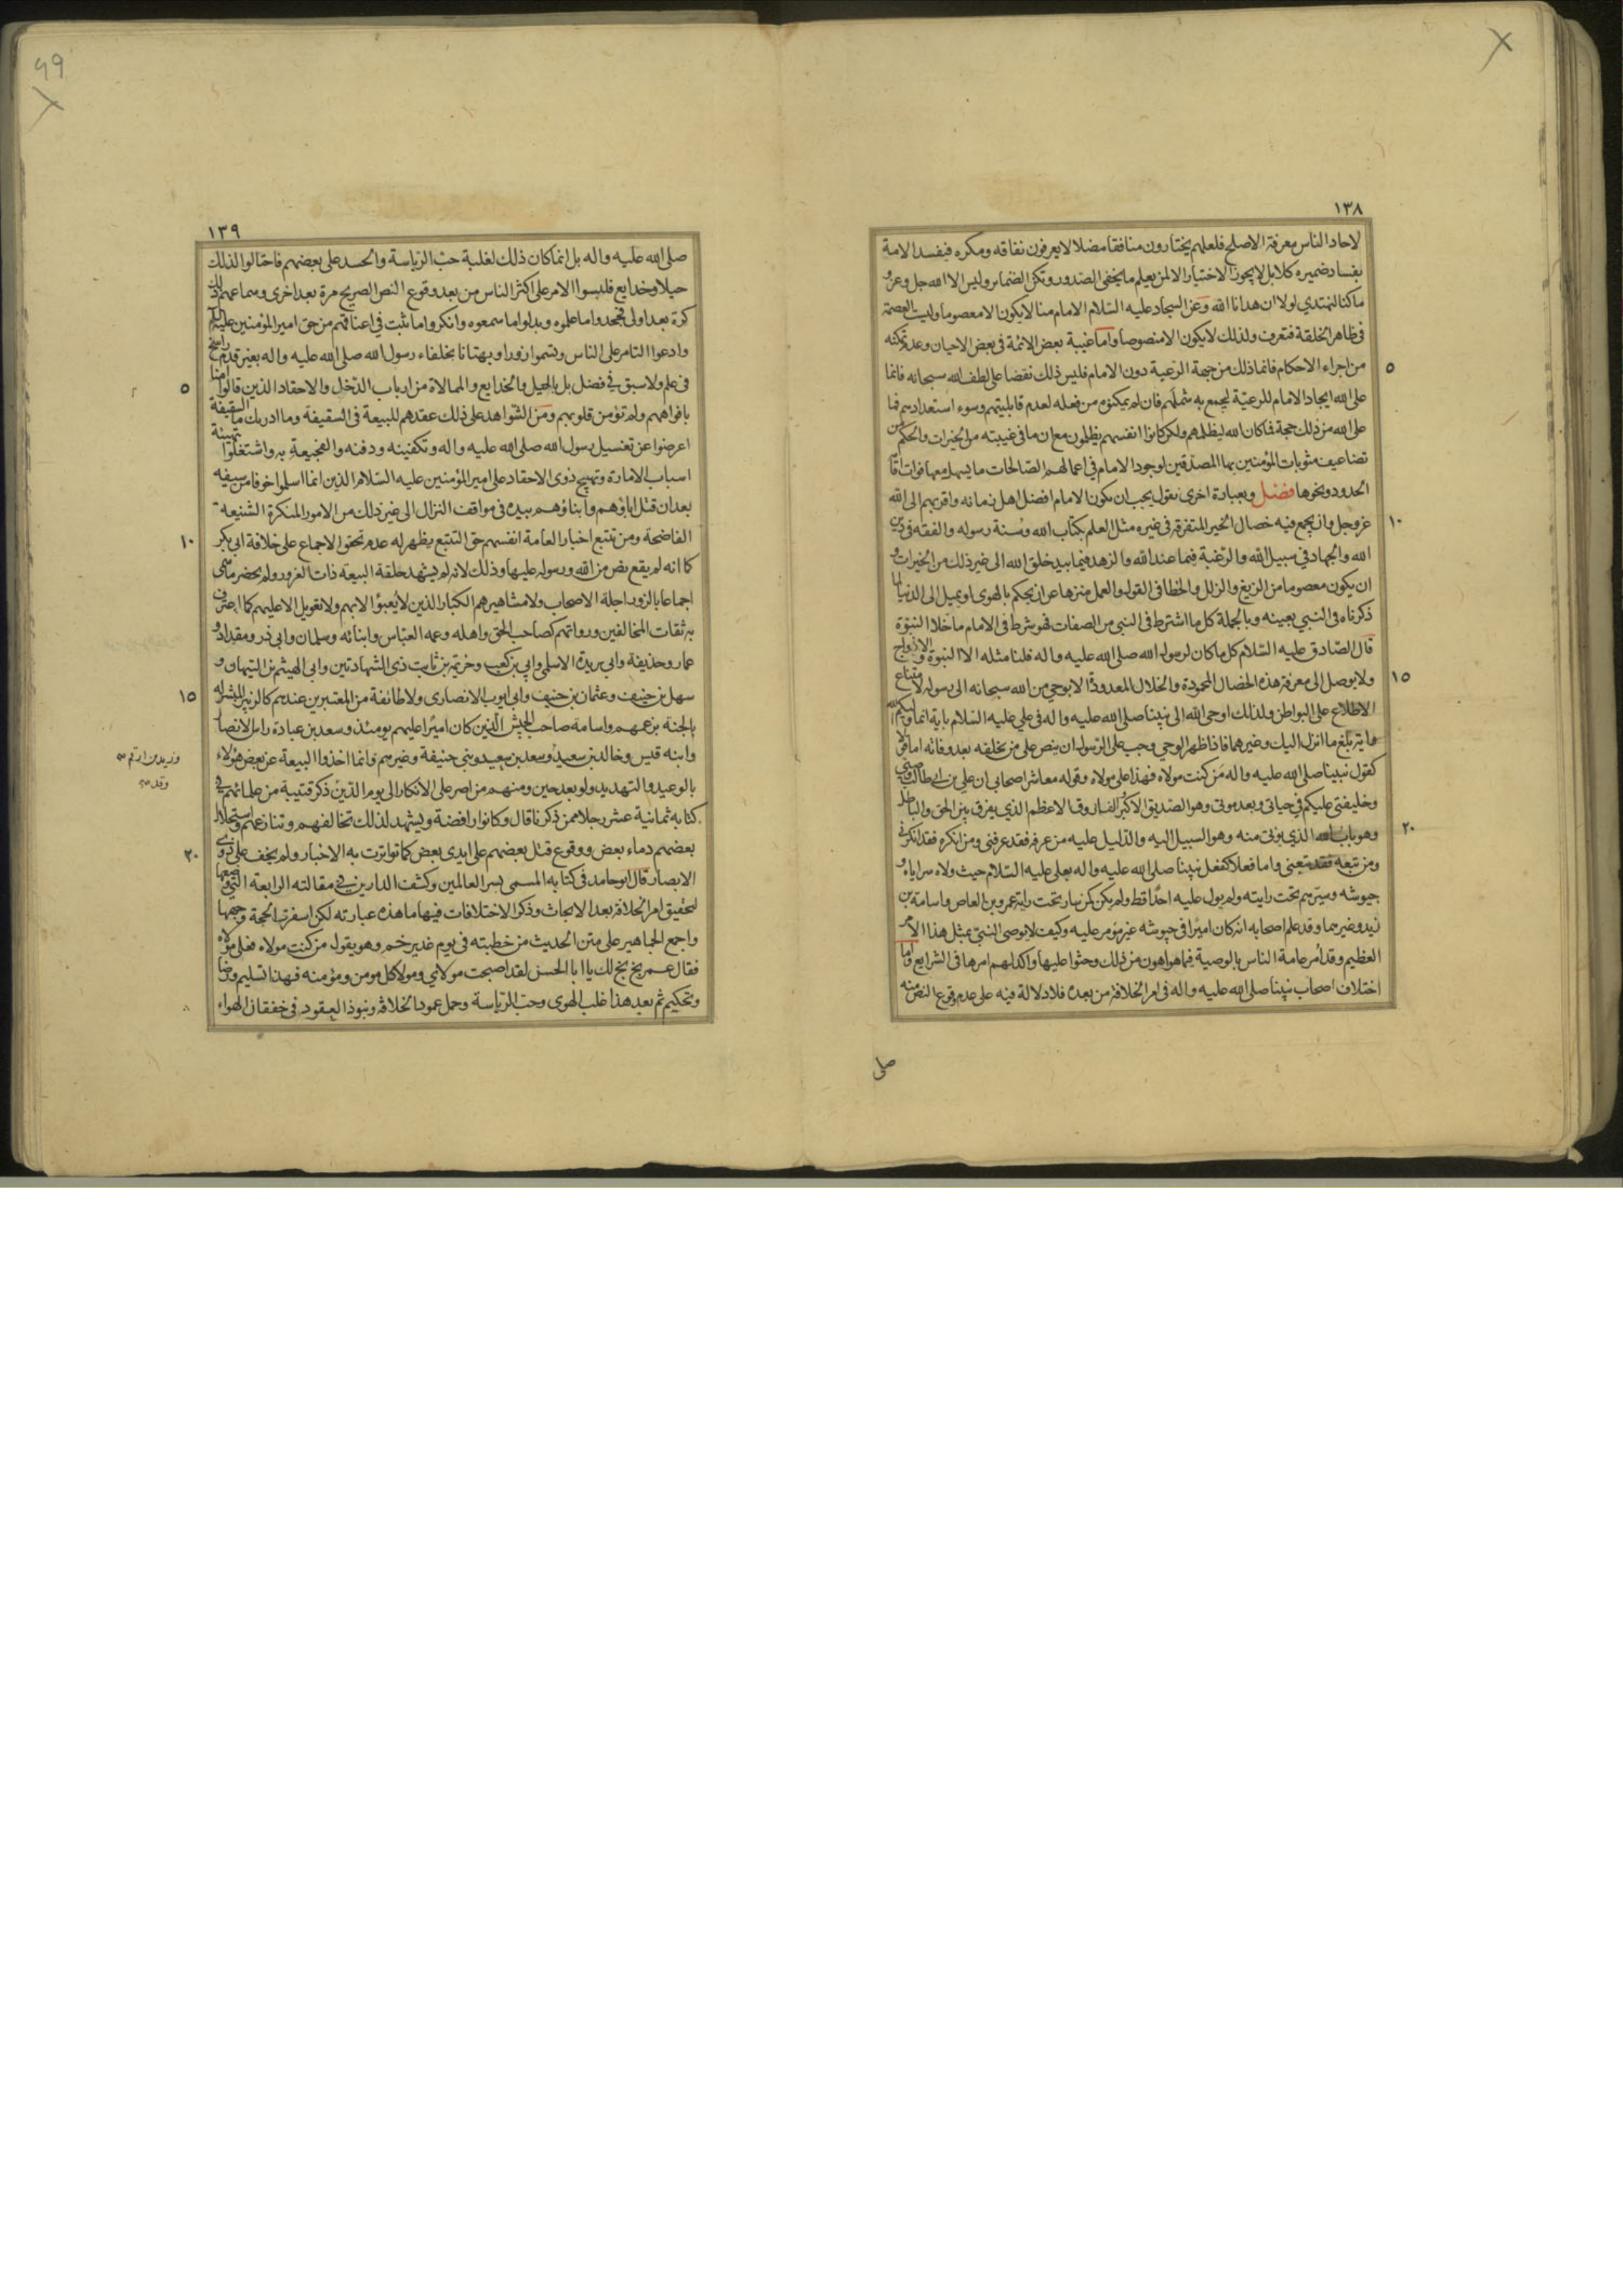 ١٣٨
لاحاد الناس معرفة الاصلح فلعلهم يختارون منافقا مضلا لا يعرفون نفاقه ومكره فيفسد الامة
بفساد ضميره كلا بل لا يجوز الاختيار الا لمن يعلم ما يخفى الصدور وتكن الضماير وليس الا الله جل وعز و
ما كنا لنهتدي لولا ان هدانا الله وعن السجاد عليه السلام الامام منا لا يكون الا معصوما وليست العصمة
في ظاهر الخلقة فتعرف ولذلك لا يكون الا منصوصا واما غيبة بعض الائمة في بعض الاحيان وعدم تمكنه
٥
من اجراء الاحكام فانما ذلك من جهة الرعية دون الامام فليس ذلك نقضا على لطف الله سبحانه فانما
على الله ايجاد الامام للرعية ليجمع به شملهم فان لم يمكنوه من فعله لعدم قابليتهم وسوء استعدادهم فما
على الله من ذلك حجة فما كان الله ليظلمهم ولكن كانوا انفسهم يظلمون مع ان ما في غيبته من الخيرات والحكم من
تضاعيف مثوبات المؤمنين بها المصدقين لوجود الامام في اعمالهم الصالحات ما يسهل معها فوات اقامة
الحدود ونحوها فصل وبعبارة اخرى نقول يجب ان يكون الامام افضل اهل زمانه واقربهم الى الله
١٠
عز وجل وان يجمع فيه خصال الخير المتفرقة في غيره مثل العلم بكتاب الله وسنة رسوله والفقه في دين
الله والجهاد في سبيل الله والرغبة فيما عند الله والزهد فيما بيد خلق الله الى غير ذلك من الخيرات و
ان يكون معصوما من الزيغ والزلل والخطا في القول والعمل منزها عن ان يحكم بالهوى او يميل الى الدنيا لما
ذكرناه في النبي بعينه وبالجملة كل ما اشترط في النبي من الصفات فهو شرط في الامام ما خلا النبوة
قال الصادق عليه السلام كل ما كان لرسول الله صلى الله عليه واله فلنا مثله الا النبوة والازواج
١٥
ولا يوصل الى معرفة هذه الخصال المحمودة والخلال المعدودة الا بوحي من الله سبحانه الى رسوله لامتناع
الاطلاع على البواطن ولذلك اوحى الله الى نبينا صلى الله عليه واله في علي عليه السلام باية انما وليكم الله
واية بلغ ما انزل اليك وغيرهما فاذا ظهر الوحي وجب على الرسول ان ينص على من يخلفه بعد وفاته اما قولا
كقول نبينا صلى الله عليه واله من كنت مولاه فهذا علي مولاه وقوله معاشر اصحابي ان علي بن ابي طالب وصيي
وخليفتي عليكم في حياتي وبعد موتي وهو الصديق الاكبر الفاروق الاعظم الذي يفرق بين الحق والباطل
٢٠
وهو باب الله الذي يؤتى منه وهو السبيل اليه والدليل عليه من عرفه فقد عرفني ومن انكره فقد انكرني
ومن تبعه فقد تبعني واما فعلا كفعل نبينا صلى الله عليه واله بعلي عليه السلام حيث ولاه سراياه و
جيوشه وسيرهم تحت رايته ولم يول عليه احدا قط ولم يكن كمن سار تحت راية عمرو بن العاص واسامة بن
زيد وغيرهما وقد علم اصحابه انه كان اميرا في جيوشه غير مؤمر عليه وكيف لا يوصي النبي بمثل هذا الامر
العظيم وقد امر عامة الناس بالوصية فيما هو اهون من ذلك وحثوا عليها واكد لهم امرها في الشرايع واما
اختلاف اصحاب نبينا صلى الله عليه واله في امر الخلافة من بعده فلا دلالة فيه على عدم وقوع النص منه
صلى
٩٩
١٣٩
صلى الله عليه واله بل انما كان ذلك لغلبة حب الرياسة والحسد على بعضهم فاحتالوا لذلك
حيلا وخدايع فلبسوا الامر على اكثر الناس من بعد وقوع النص الصريح مرة بعد اخرى وسماعهم ذلك
كرة بعد اولى فجحدوا ما علموه وبدلوا ما سمعوه وانكروا ما ثبت في اعناقهم من حق امير المؤمنين عليه السلام
وادعوا التامر على الناس وتسموا زورا وبهتانا بخلفاء رسول الله صلى الله عليه واله بغير قدم راسخ
٥
في علم ولا سبق في فضل بل بالحيل والخدايع والممالاة من ارباب الدخل والاحقاد الذين قالوا امنا
بافواههم ولم تؤمن قلوبهم ومن الشواهد على ذلك عقدهم للبيعة في السقيفة وما ادريك ما السقيفة
اعرضوا عن تغسيل رسول الله صلى الله عليه واله وتكفينه ودفنه والفجيعة به واشتغلوا بتهيئة
اسباب الامارة وتهييج ذوي الاحقاد على امير المؤمنين عليه السلام الذين انما اسلموا خوفا من سيفه
بعد ان قتل اباؤهم وابناؤهم بيده في مواقف النزال الى غير ذلك من الامور المنكرة الشنيعة
١٠
الفاضحة ومن تتبع اخبار العامة انفسهم حق التتبع يظهر له عدم تحقق الاجماع على خلافة ابي بكر
كما انه لم يقع نص من الله ورسوله عليها وذلك لانه لم يشهد حلقة البيعة ذات الغرور ولم يحضر ما سمي
اجماعا بالزور اجلة الاصحاب ولا مشاهيرهم الكبار الذين لا يعبؤ الا بهم ولا تعويل الا عليهم كما اعترف
به ثقات المخالفين ورواتهم كصاحب الحق واهله وعمه العباس وابنائه وسلمان وابي ذر ومقداد و
عمار وحذيفة وابي بريدة الاسلمي وابي بن كعب وخزيمة بن ثابت ذي الشهادتين وابي الهيثم بن التيهان و
١٥
سهل بن حنيف وعثمان بن حنيف وابي ايوب الانصاري ولا طائفة من المعتبرين عندهم كالزبير المبشر له
بالجنة بزعمهم واسامة صاحب الجيش الذين كان اميرا عليهم يومئذ وسعد بن عبادة راس الانصار
وابنه قيس وخالد بن سعيد وسعد بن سعيد وبني حنيفة وغيرهم فانما اخذوا البيعة عن بعض هؤلاء
وزيد بن ارقم
بالوعيد والتهديد ولو بعد حين ومنهم من اصر على الانكار الى يوم الدين ذكر قتيبة من علمائهم في
كتابه ثمانية عشر رجلا ممن ذكرنا قال وكانوا رافضة ويشهد لذلك تخالفهم وتنازعهم واستحلال
٢٠
بعضهم دماء بعض ووقوع قتل بعضهم على ايدي بعض كما تواترت به الاخبار ولم يخف على ذوي
الابصار قال ابو حامد في كتابه المسمى بسر العالمين وكشف الدارين في مقالته الرابعة التي وضعها
لتحقيق امر الخلافة بعد الابحاث وذكر الاختلافات فيها ما هذه عبارته لكن اسفرت الحجة وجهها
واجمع الجماهير على متن الحديث من خطبته في يوم غدير خم وهو يقول من كنت مولاه فعلي مولاه
فقال عمر بخ بخ لك يا ابا الحسن لقد اصبحت مولاي ومولا كل مومن ومؤمنه فهذا تسليم ورضا
وتحكيم ثم بعد هذا غلب الهوى وحب الرياسة وحمل عمود الخلافة وبنوذ العقود في خفقان الهواء